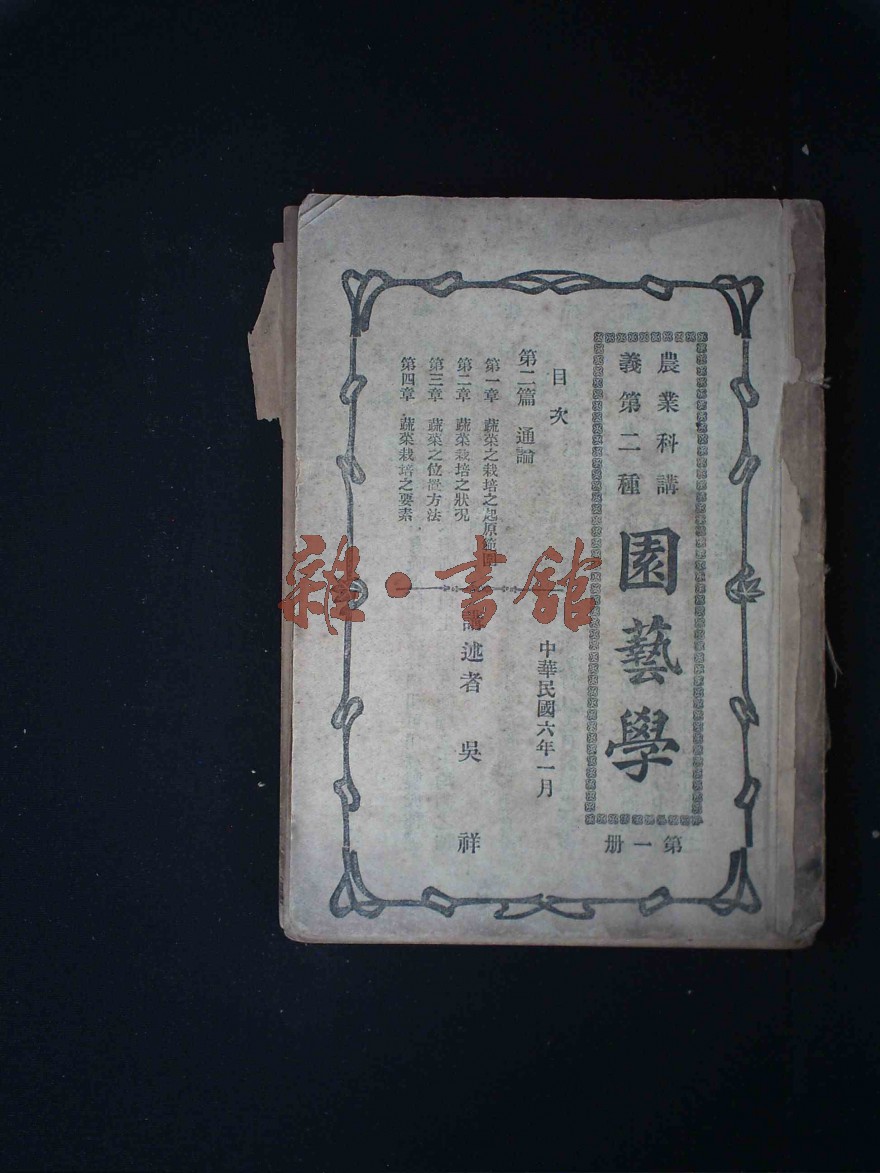 農業科講
義第二種
園藝學
第一册
目次
第二篇 通論
第一章 蔬菜之栽培之起原範圍
第二章 蔬菜栽培之狀況
第三章 蔬菜之位置方法
第四章 蔬菜栽培之要素
中華民國六年一月
講述者 吳 祥
雜·書館